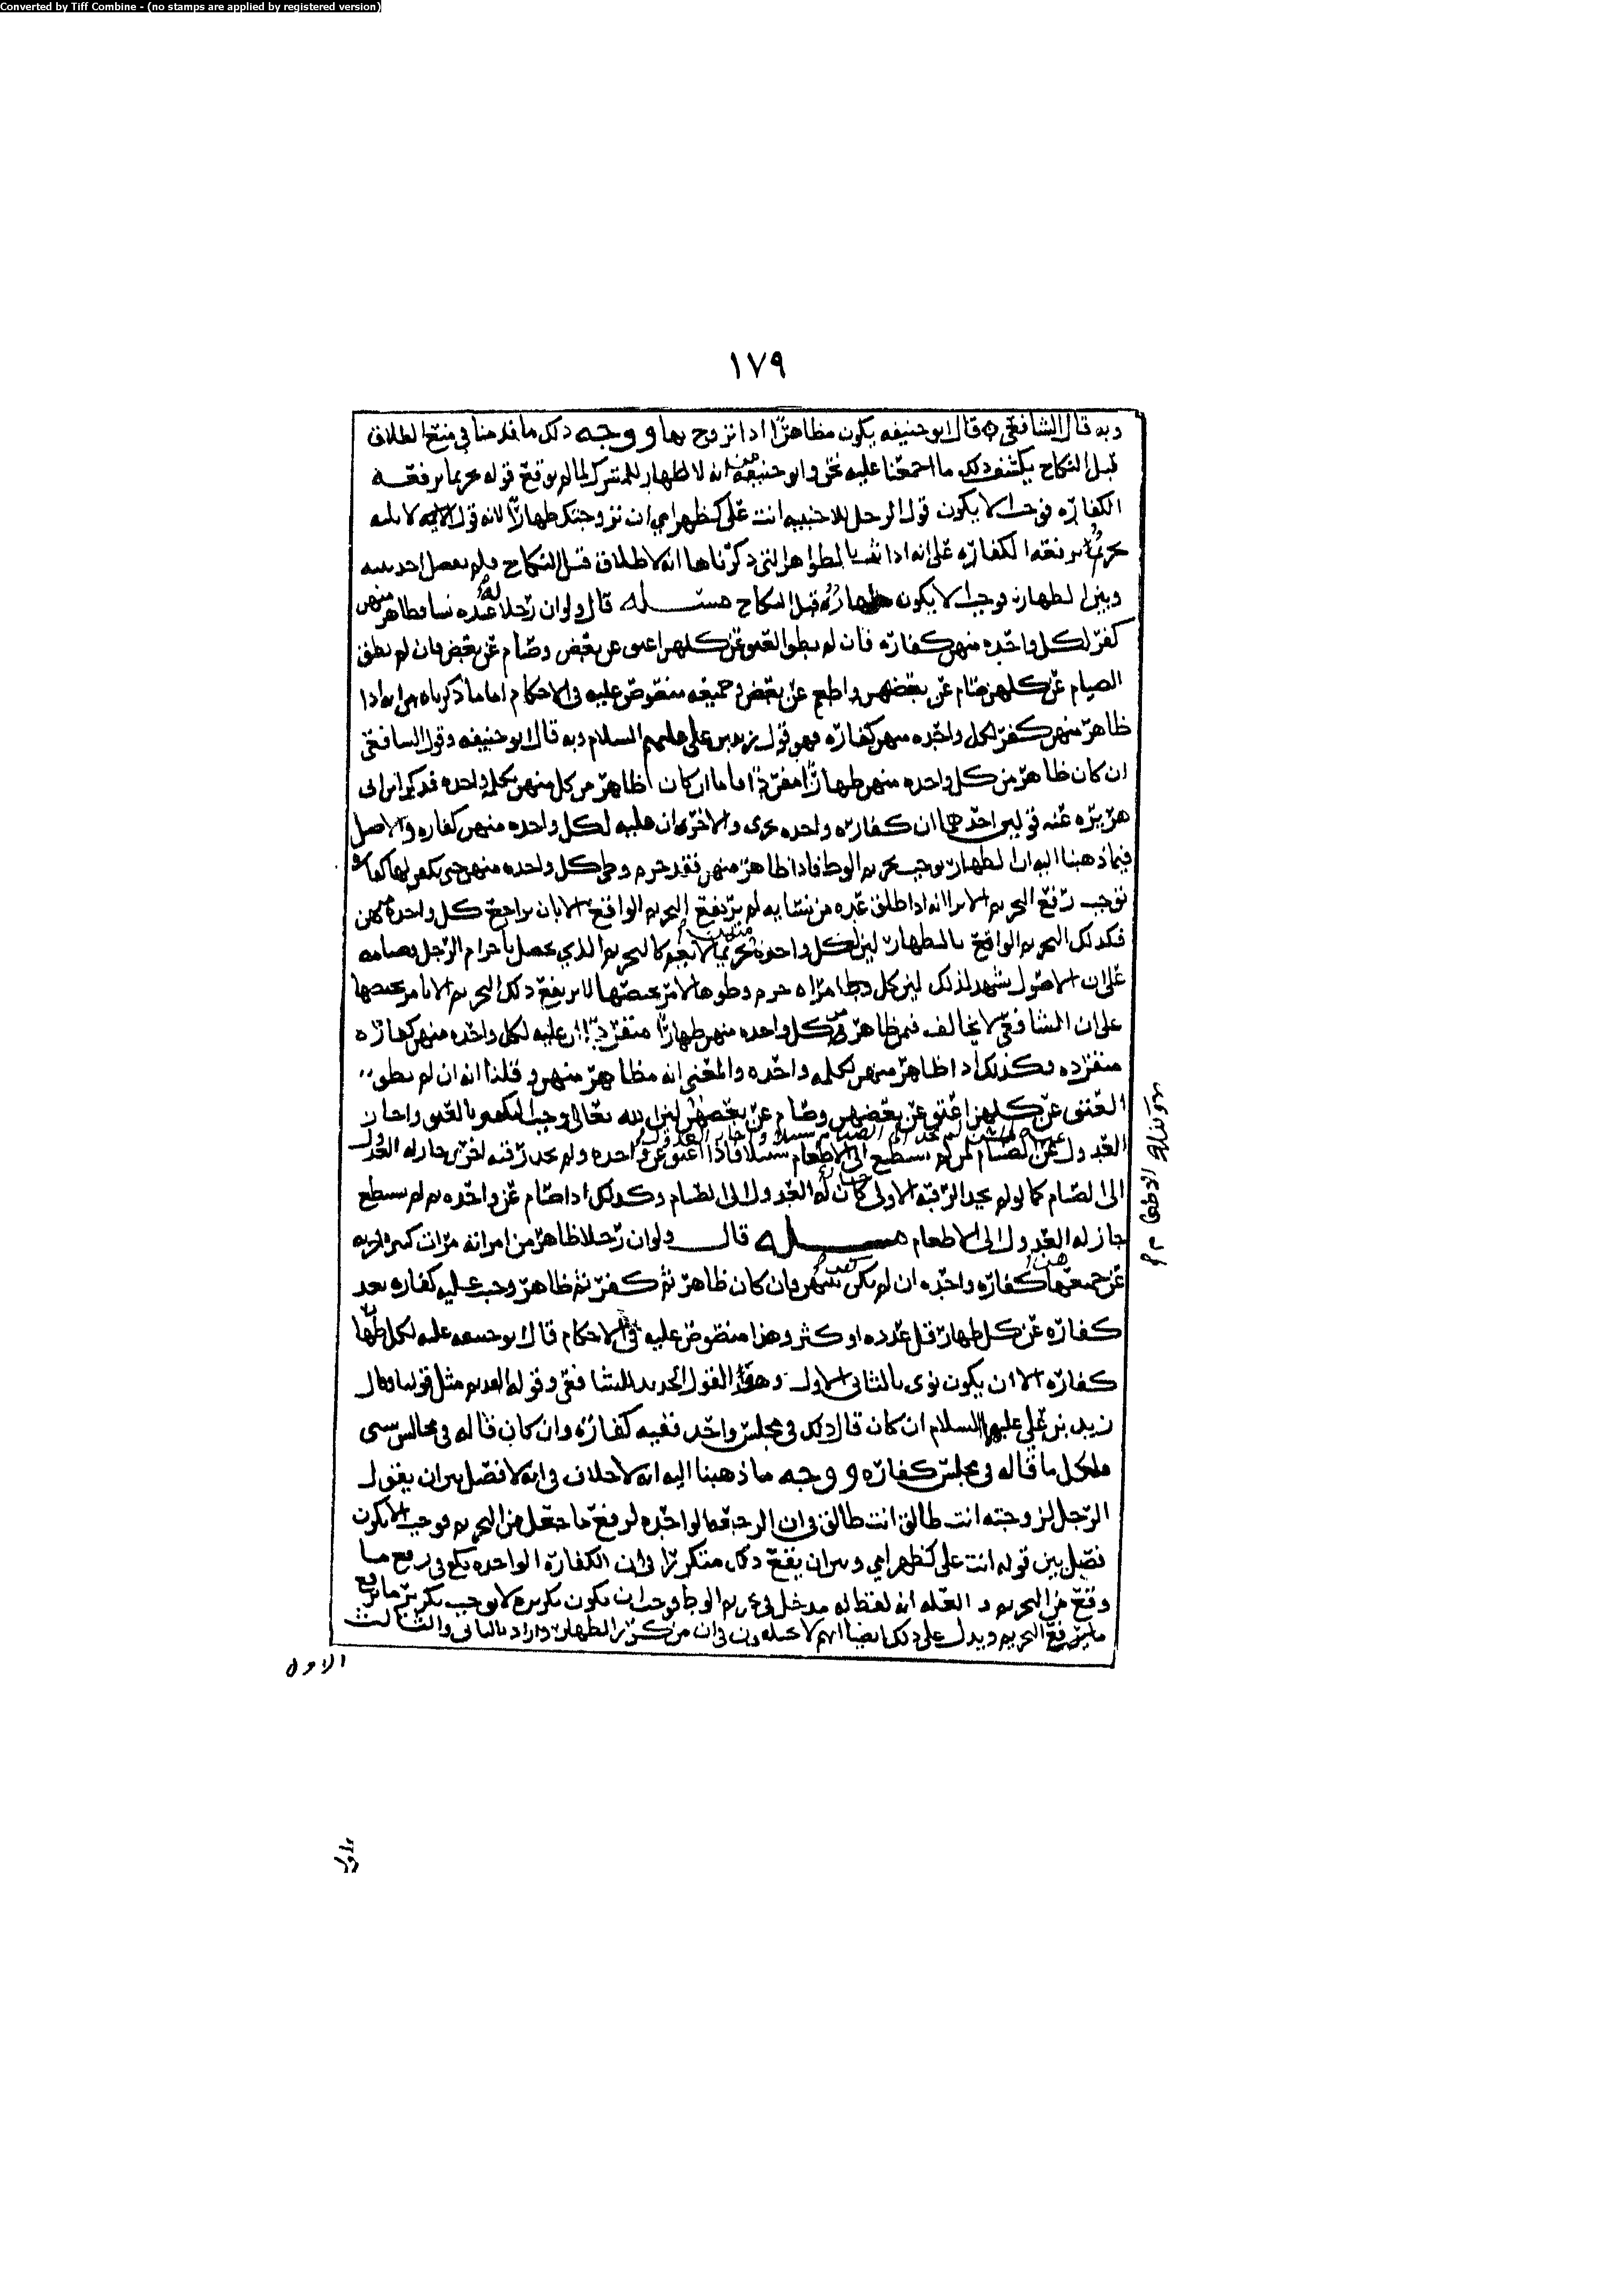 Converted by Tiff Combine - (no stamps are applied by registered version)
١٧٩
وبه قال الشافعي قال ابو حنيفه يكون مظاهرا اذا تزوج بها ووجه ذلك ما قدمنا في منع الطلاق
قبل النكاح يكشف ذلك ما اجمعنا عليه نحن وابو حنيفه انه لا ظهار للمشرك لما لم يوقع قوله تحريما ترفعه
الكفاره فوجب الا يكون قول الرجل للاجنبيه انت علي كظهر امي ان تزوجتك ظهارا لانه قول
تحريم ترفعه الكفاره على انه اذا الظواهر التي ذكرناها انه لا طلاق قبل النكاح ولم يفصل احد بينه
وبين الظهار فوجب الا يكون ظهاره قبل النكاح مسئله قال ولو ان رجلا له عده نسا فظاهر منهن
كفر لكل واحده منهن كفاره فان لم يطق العتق عن كلهن اعتق عن بعض وصام عن بعض وان لم يطق
الصيام عن كلهن صام عن بعضهن واطعم عن بعض وجميعه منصوص عليه في الاحكام اما ما ذكرناه من انه اذا
ظاهر منهن كفر لكل واحده منهن كفاره فهو قول زيد بن علي عليهم السلام وبه قال ابو حنيفه وقول الشافعي
ان كان ظاهر من كل واحده منهن ظهارا مفردا فاما ان كان ظاهر من كل منهن بكلمه واحده فذكر ابن ابي
هريره عنه قولين احدهما ان كفاره واحده تجزي والاخر ان عليه لكل واحده منهن كفاره والاصل
فيما ذهبنا اليه ان الظهار يوجب تحريم الوطي فاذا ظاهر منهن فقد حرم وطي كل واحده منهن حتى يكفر لها كفاره
توجب رفع التحريم الا ترا انه اذا طلق عده من نسايه لم يرتفع التحريم الواقع الا بان يراجع كل واحده منهن
فكذلك التحريم الواقع بالظهار لين لكل واحده تحريما كالتحريم الذي يحصل باحرام الرجل وصيامه
على ان الاصول تشهد لذلك لين كل امراه حرم وطوها لامر يخصها لا يرتفع ذلك التحريم الا بامر يخصها
على ان الشافعي لا يخالف فيمن ظاهر من كل واحده منهن ظهارا منفردا ان عليه لكل واحده منهن كفاره
منفرده وكذلك اذا ظاهر منهن بكلمه واحده والمعنى انه مظاهر منهن وقلنا انه ان لم يطق
العتق عن كلهن اعتق عن بعضهن وصام عن بعضهن لين الله تعالى اوجب التكفير بالعتق واجاز
العدول الى الصيام لمن لم يستطع الى الاطعام سبيلا فاذا اعتق عن واحده ولم يجد رقبه اخرى جاز له العدول
الى الصيام كما لو لم يجد الرقبه الاولى كان له العدول الى الصيام وكذلك اذا صام عن واحده ثم لم يستطع
جاز له العدول الى الاطعام مسئله قال ولو ان رجلا ظاهر من امراته مرات كثيره اجزته
عن جميعها كفاره واحده ان لم يكن بينهن وان كان ظاهر ثم كفر ثم ظاهر وجبت عليه كفاره بعد
كفاره عن كل ظهار قل عدده او كثر وهذا منصوص عليه في الاحكام قال ابو حنيفه عليه لكل ظهار
كفاره الا ان يكون نوى بالثاني الاول وهو القول الجديد للشافعي وقوله القديم مثل قولنا وقال
زيد بن علي عليهما السلام ان كان قال ذلك في مجلس واحد ففيه كفاره وان كان قاله في مجالس شتى
فلكل ما قاله في مجلس كفاره ووجه ما ذهبنا اليه انه لا خلاف في انه لا فصل بين ان يقول
الرجل لزوجته انت طالق انت طالق في ان الرجعه الواحده ترفع ما حصل من التحريم فوجب الا يكون
فصل بين قوله انت علي كظهر امي وبين ان يقع ذلك متكررا في ان الكفاره الواحده تكفي في رفع ما
وقع من التحريم والعله انه لفظ له مدخل في تحريم الوطي فوجب ان يكون تكريره لا يوجب تكرير ما يرفع
ما يرفع التحريم ويدل على ذلك ايضا انهم لا يختلفون في ان من كرر الظهار واراد بالثاني والثالث
الاول